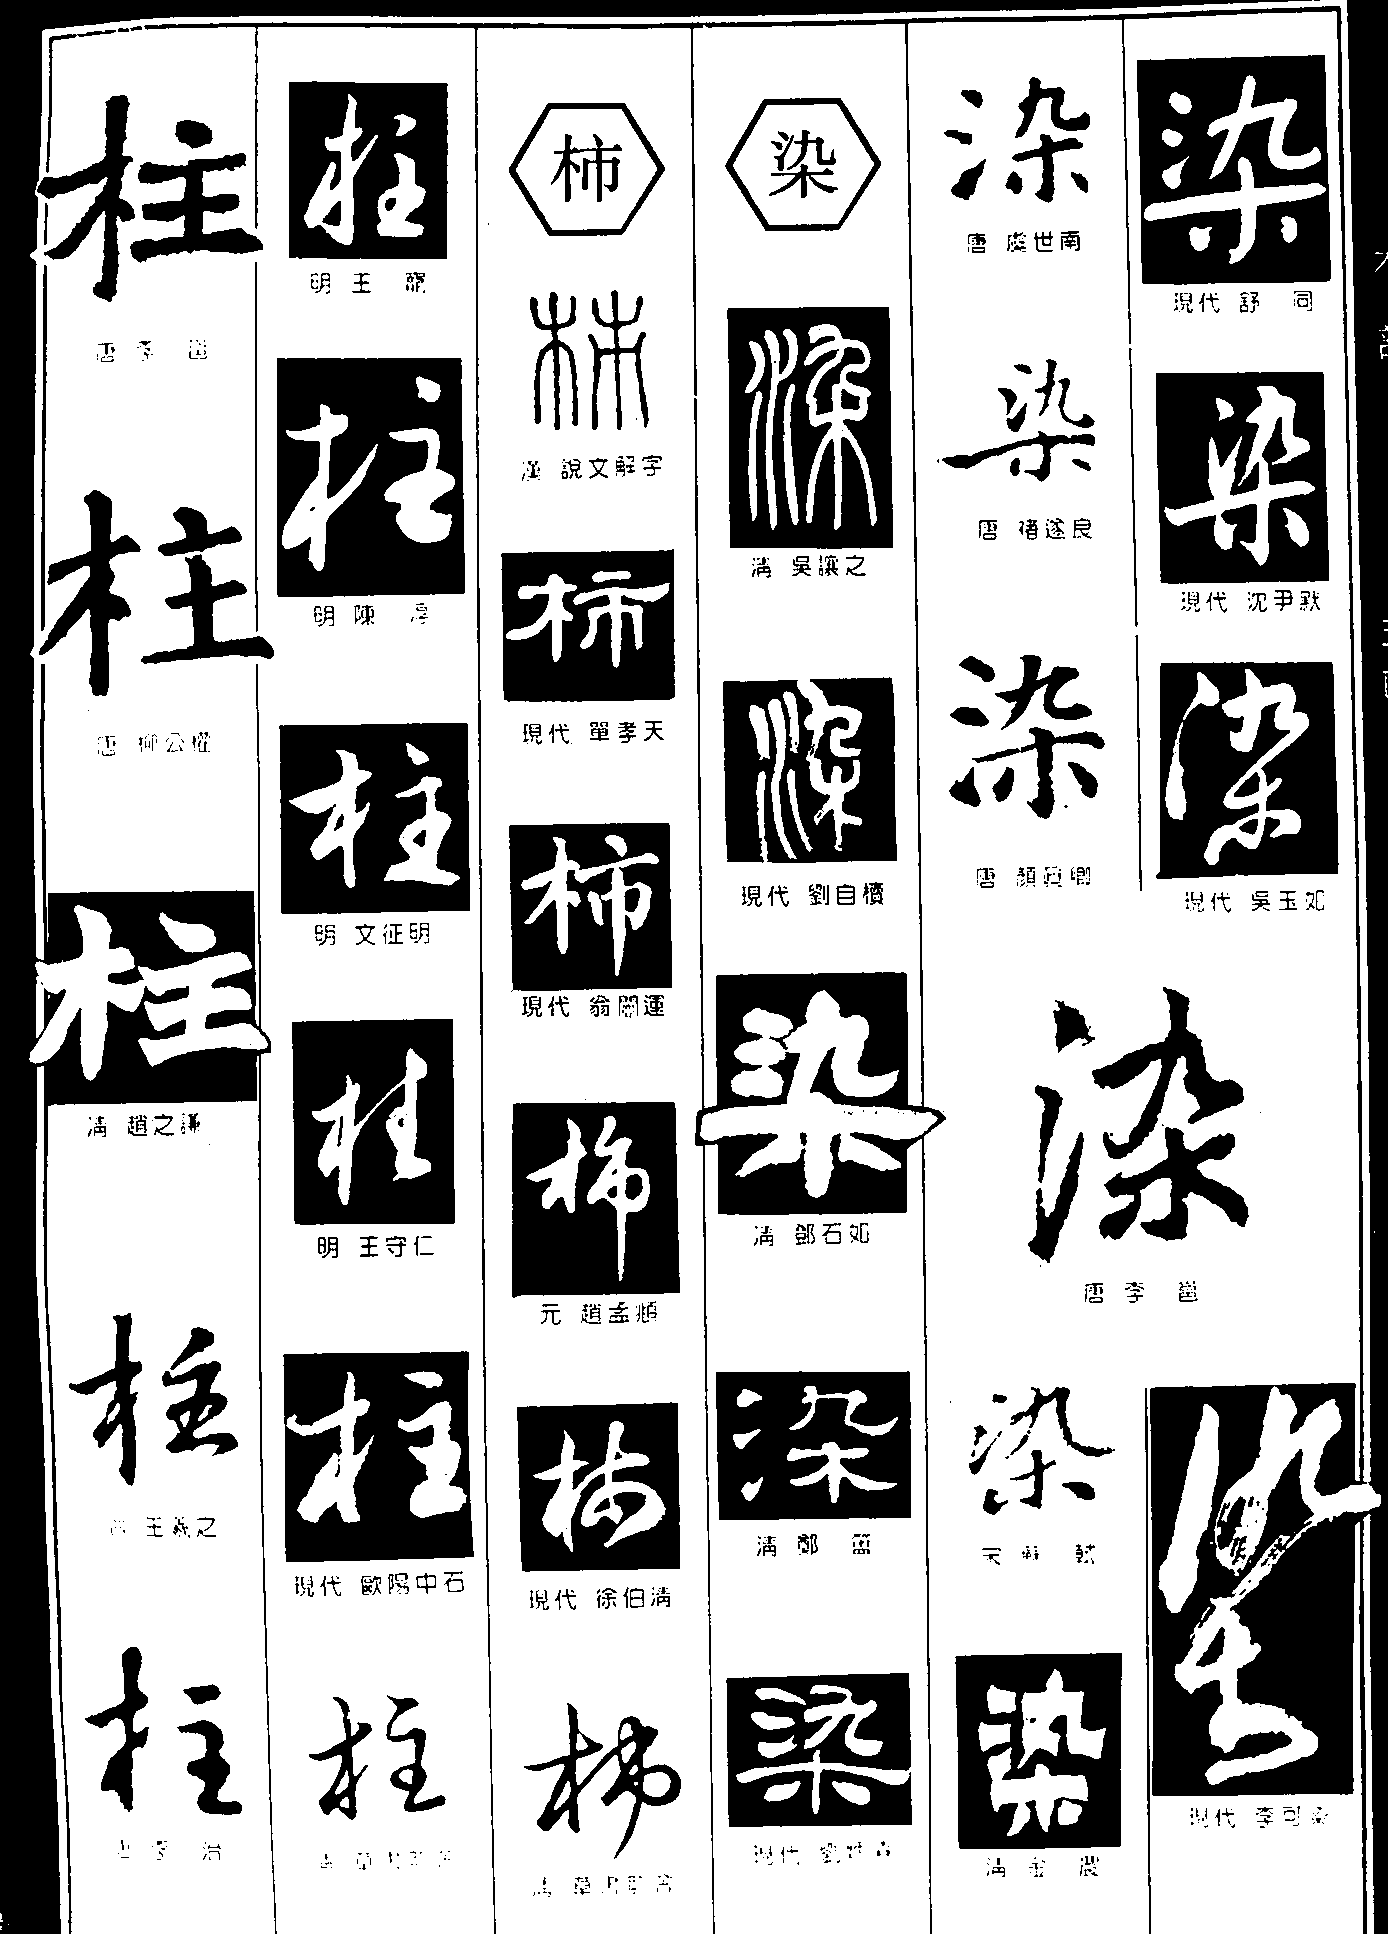 柱
唐 李 邕
柱
唐 柳公權
柱
清 趙之謙
柱
王羲之
柱
李 治
柱
明 王 寵
柱
明 陳 淳
柱
明 文征明
柱
明 王守仁
柱
現代 歐陽中石
柱
草
柿
柿
漢 說文解字
柿
現代 單孝天
柿
現代 翁闓運
柿
元 趙孟頫
柿
現代 徐伯清
柿
草
染
染
清 吳讓之
染
現代 劉自櫝
染
清 鄧石如
染
清 鄭 簠
染
現代 劉炳森
染
唐 虞世南
染
唐 褚遂良
染
唐 顏真卿
染
唐 李 邕
染
宋 蘇 軾
染
清 金 農
染
現代 舒 同
染
現代 沈尹默
染
現代 吳玉如
染
現代 李可染